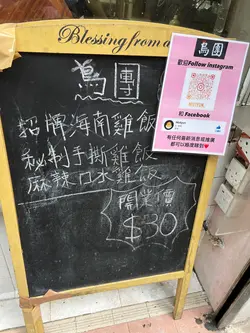 Blessing from a
鳥團
招牌海南雞飯
秘制手撕雞飯
麻辣口水雞飯
開業價
$30
鳥團
歡迎Follow Instagram
和 Facebook
有任何最新消息或推廣
都可以睇度睇到❤